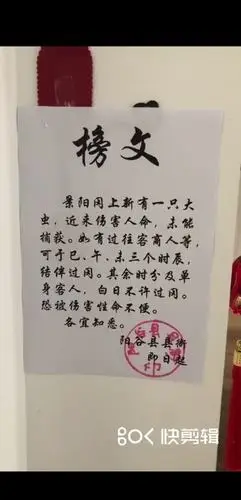 榜文
景阳冈上新有一只大
虫，近来伤害人命，未能
捕获。如有过往客商人等，
可于巳、午、未三个时辰，
结伴过冈。其余时分及单
身客人，白日不许过冈。
恐被伤害性命不便。
各宜知悉。
阳谷县县衙
即日起
快剪辑